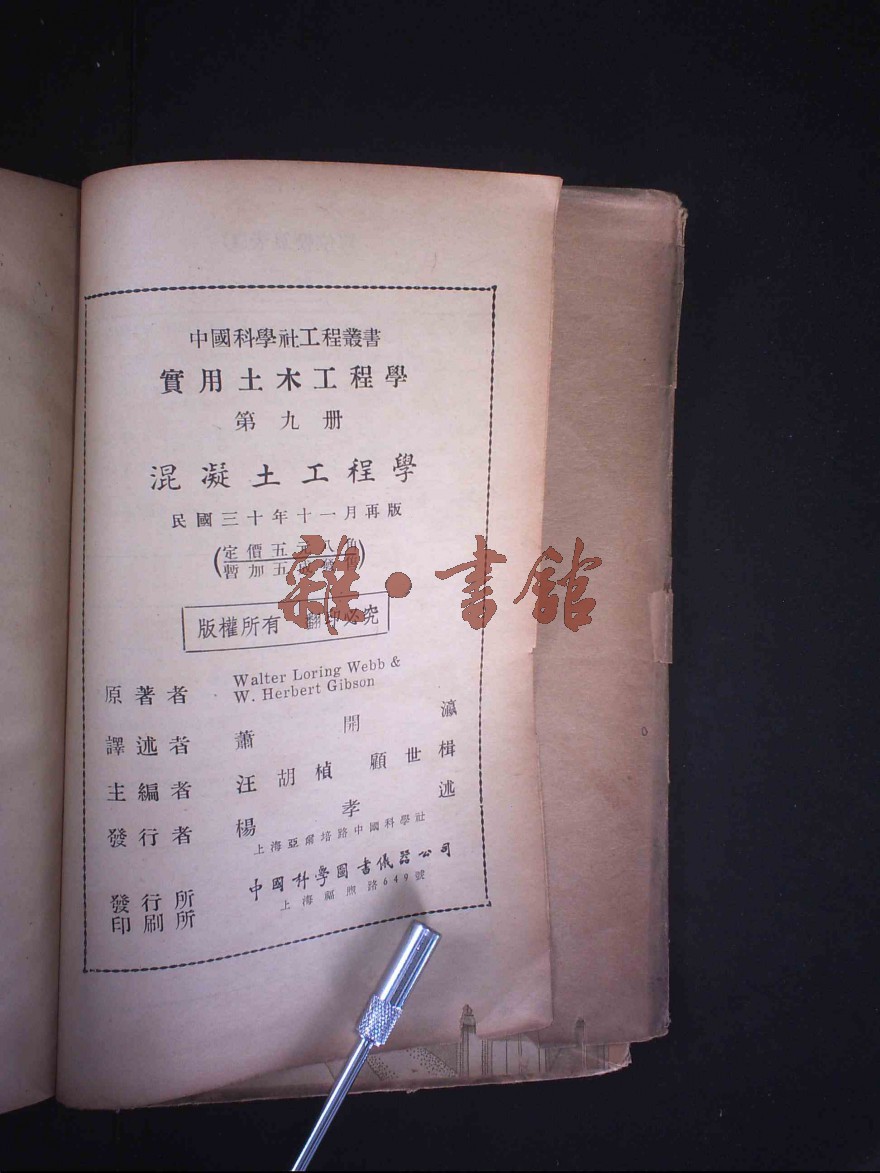 中國科學社工程叢書
實用土木工程學
第九册
混凝土工程學
民國三十年十一月再版
(定價五元八角
暫加五成
版權所有 翻印必究
原著者 Walter Loring Webb &
W. Herbert Gibson
譯述者 蕭開瀛
主編者 汪胡楨 顧世楫
發行者 楊孝述
上海亞爾培路中國科學社
發行所 中國科學圖書儀器公司
印刷所 上海福煦路649號
雜·書館